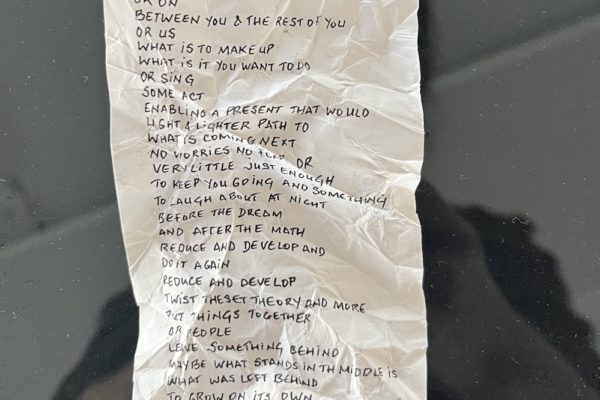 OR ON
BETWEEN YOU & THE REST OF YOU
OR US
WHAT IS TO MAKE UP
WHAT IS IT YOU WANT TO DO
OR SING
SOME ACT
ENABLING A PRESENT THAT WOULD
LIGHT A LIGHTER PATH TO
WHAT IS COMING NEXT
NO WORRIES NO OR
VERY LITTLE JUST ENOUGH
TO KEEP YOU GOING AND SOMETHING
TO LAUGH ABOUT AT NIGHT
BEFORE THE DREAM
AND AFTER THE MATH
REDUCE AND DEVELOP AND
DO IT AGAIN
REDUCE AND DEVELOP
TWIST THE SET THEORY AND MORE
PUT THINGS TOGETHER
OR PEOPLE
LEAVE SOMETHING BEHIND
MAYBE WHAT STANDS IN TH MIDDLE IS
WHAT WAS LEFT BEHIND
TO GROW ON ITS OWN